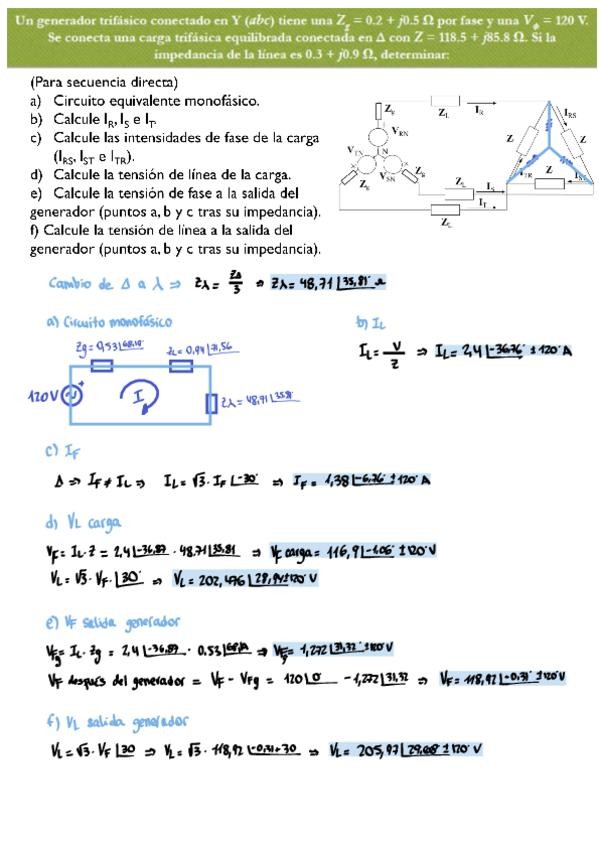 Un generador trifásico conectado en Y (abc) tiene una Zg = 0.2 + j0.5 Ω por fase y una Vϕ = 120 V.
Se conecta una carga trifásica equilibrada conectada en Δ con Z = 118.5 + j85.8 Ω. Si la
impedancia de la línea es 0.3 + j0.9 Ω, determinar:
(Para secuencia directa)
a) Circuito equivalente monofásico.
b) Calcule IR, IS e IT.
c) Calcule las intensidades de fase de la carga
(IRS, IST e ITR).
d) Calcule la tensión de línea de la carga.
e) Calcule la tensión de fase a la salida del
generador (puntos a, b y c tras su impedancia).
f) Calcule la tensión de línea a la salida del
generador (puntos a, b y c tras su impedancia).
Zg ZL IR IRS
VRN Z Z
VTN N
VSN Zg ITR Z
Zg ZL IS
IT
ZL
Cambio de Δ a λ ⇒ Zλ = ZΔ/3 ⇒ Zλ = 48,71 |35,81° Ω
a) Circuito monofásico
b) IL
Zg = 0,53 |68,19° ZL = 0,94 |71,56
IL = V/Z ⇒ IL = 2,4 |-36,76° ± 120° A
120V I Zλ = 48,71 |35,81
c) IF
Δ ⇒ IF ≠ IL ⇒ IL = √3 · IF |-30° ⇒ IF = 1,38 |-6,76° ± 120° A
d) VL carga
VF = IL · Z = 2,4 |-36,87 · 48,71 |35,81 ⇒ VF carga = 116,9 |-1,06° ± 120° V
VL = √3 · VF · |30° ⇒ VL = 202,476 |28,94 ± 120° V
e) VF salida generador
VFg = IL · Zg = 2,4 |-36,87 · 0,53 |68,19 ⇒ VFg = 1,272 |31,32° ± 120° V
VF después del generador = VF - VFg = 120 |0° - 1,272 |31,32 ⇒ VF = 118,92 |-0,31° ± 120° V
f) VL salida generador
VL = √3 · VF |30 ⇒ VL = √3 · 118,92 |-0,31+30 ⇒ VL = 205,97 |29,68° ± 120° V